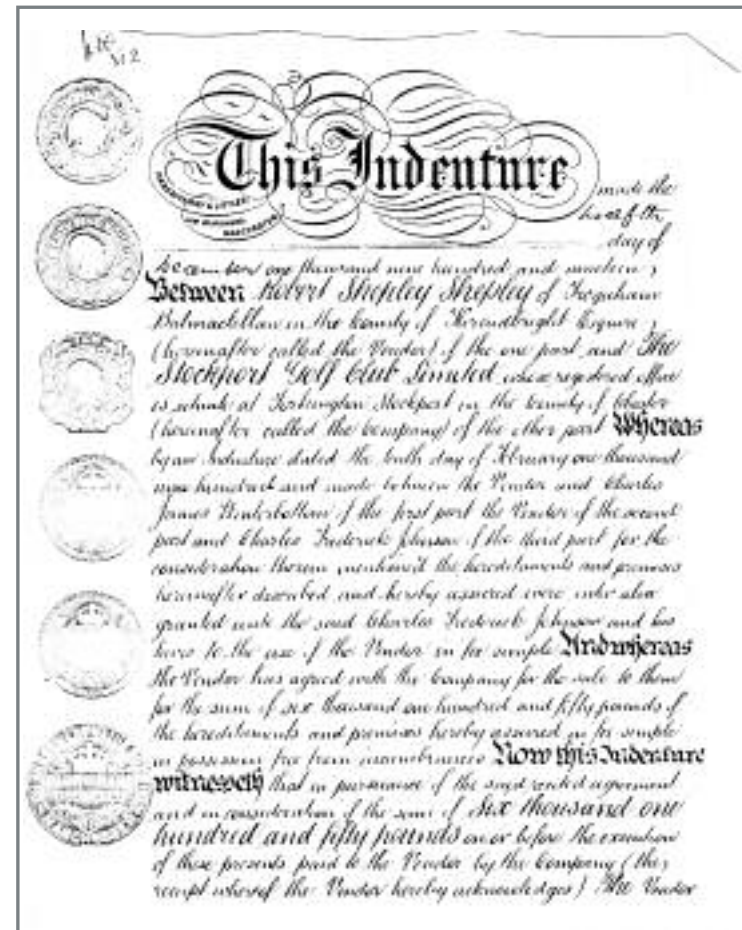 312
This Indenture
made the
day of
one thousand nine hundred and nineteen
Between Robert Shepley Shepley of
Balmaclellan in the County of Kircudbright Esquire
(hereinafter called the Vendor) of the one part and The
Stockport Golf Club Limited whose registered office
is situate at Torkington Stockport in the County of Chester
(hereinafter called the Company) of the other part Whereas
by an Indenture dated the tenth day of February one thousand
nine hundred and made between the Vendor and Charles
James Winterbottom of the first part the Vendor of the second
part and Charles Frederick Johnson of the third part for the
consideration therein mentioned the hereditaments and premises
hereinafter described and hereby assured were inter alia
granted unto the said Charles Frederick Johnson and his
heirs to the use of the Vendor in fee simple And whereas
the Vendor has agreed with the Company for the sale to them
for the sum of six thousand one hundred and fifty pounds of
the hereditaments and premises hereby assured in fee simple
in possession free from incumbrances Now this Indenture
witnesseth that in pursuance of the said recited agreement
and in consideration of the sum of Six thousand one
hundred and fifty pounds on or before the execution
of these presents paid to the Vendor by the Company (the
receipt whereof the Vendor hereby acknowledges) The Vendor